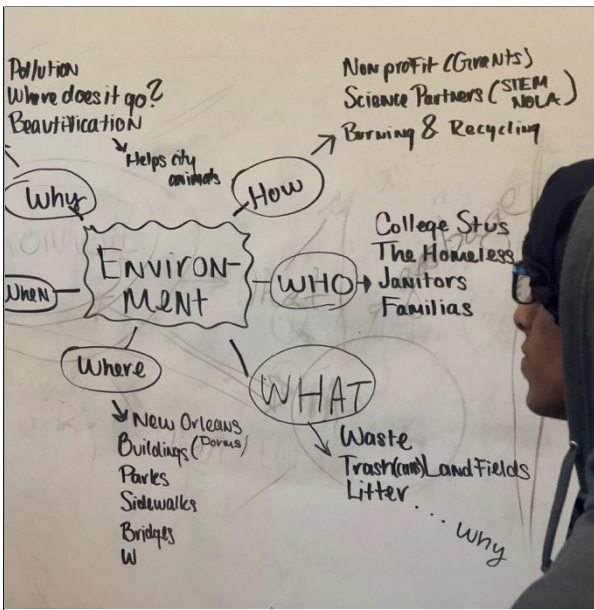 Pollution
Where does it go?
Beautification
Helps city
animals
Why
Non profit (Grants)
Science Partners (STEM
NOLA)
Burning & Recycling
How
ENVIRON-
MENT
When
WHO
College Stus
The Homeless
Janitors
Familias
Where
New Orleans
Buildings (Dorms)
Parks
Sidewalks
Bridges
W
WHAT
Waste
Trash(cans) Land Fields
Litter
.... why